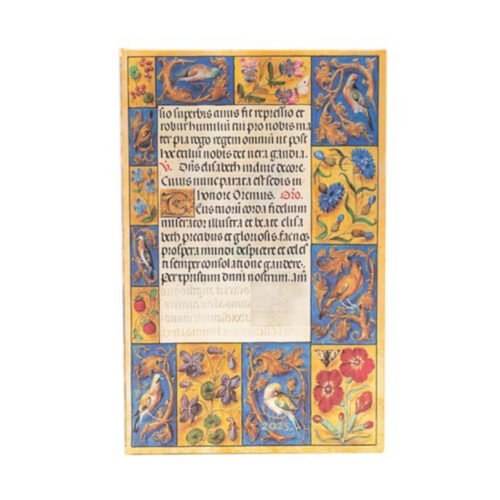 sio superbis cuius fit repressio et
robur humilium tui pro nobis ma
ter pia rogo regem omnium ut post
hoc exilium nobis det vera gaudia.
V. Dns elisabeth indue decore
Cuius nunc parata est sedis in
honore Oremus. Oro.
Tuorum corda fidelium
miserator illustra et beate elisa
beth precibus et gloriosis fac nos
prospera mundi despicere et celes
ti semper consolatione gaudere.
Per xpristum dnm nostrum. Am
2025